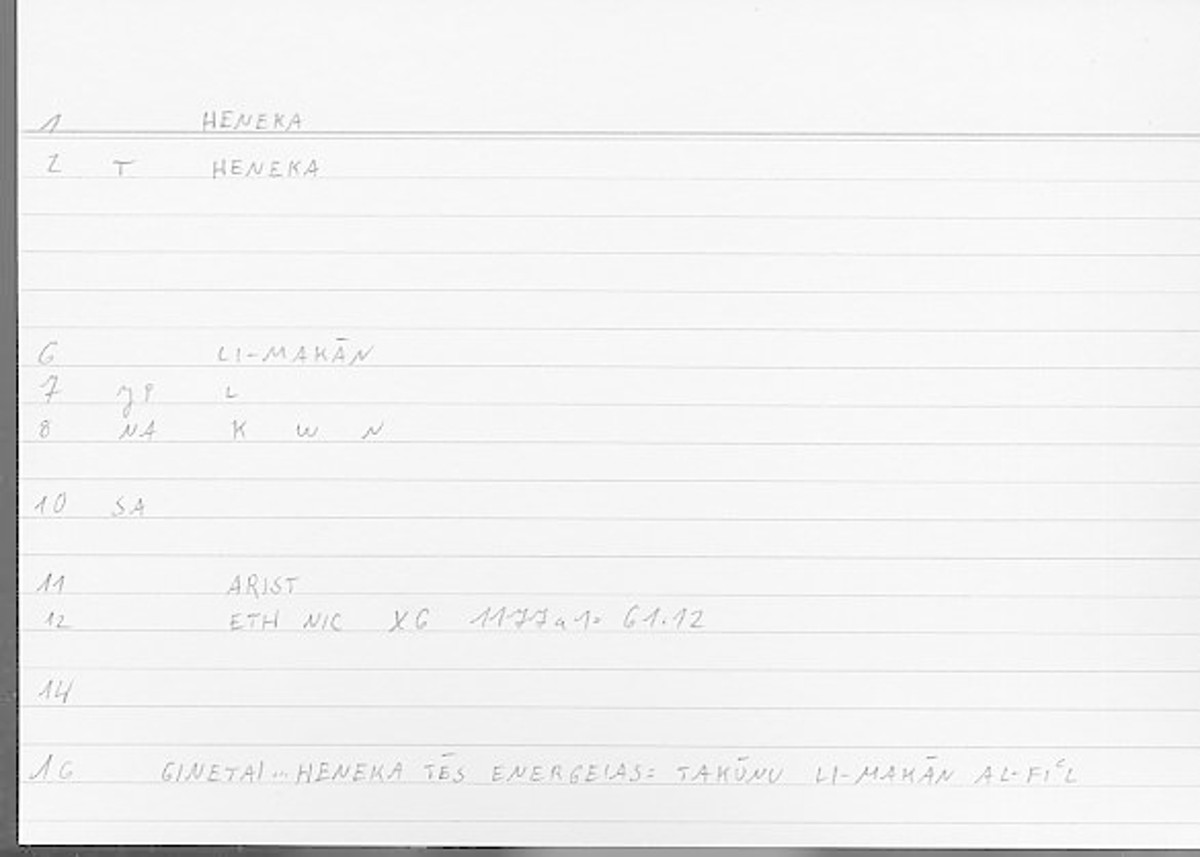 1 HENEKA
2 T HENEKA
6 LI-MAKĀN
7 JP L
8 NA K W N
10 SA
11 ARIST
12 ETH NIC X6 1177a1= 61.12
14
16 GINETAI...HENEKA TĒS ENERGEIAS= TAKŪNU LI-MAKĀN AL-FIʿL